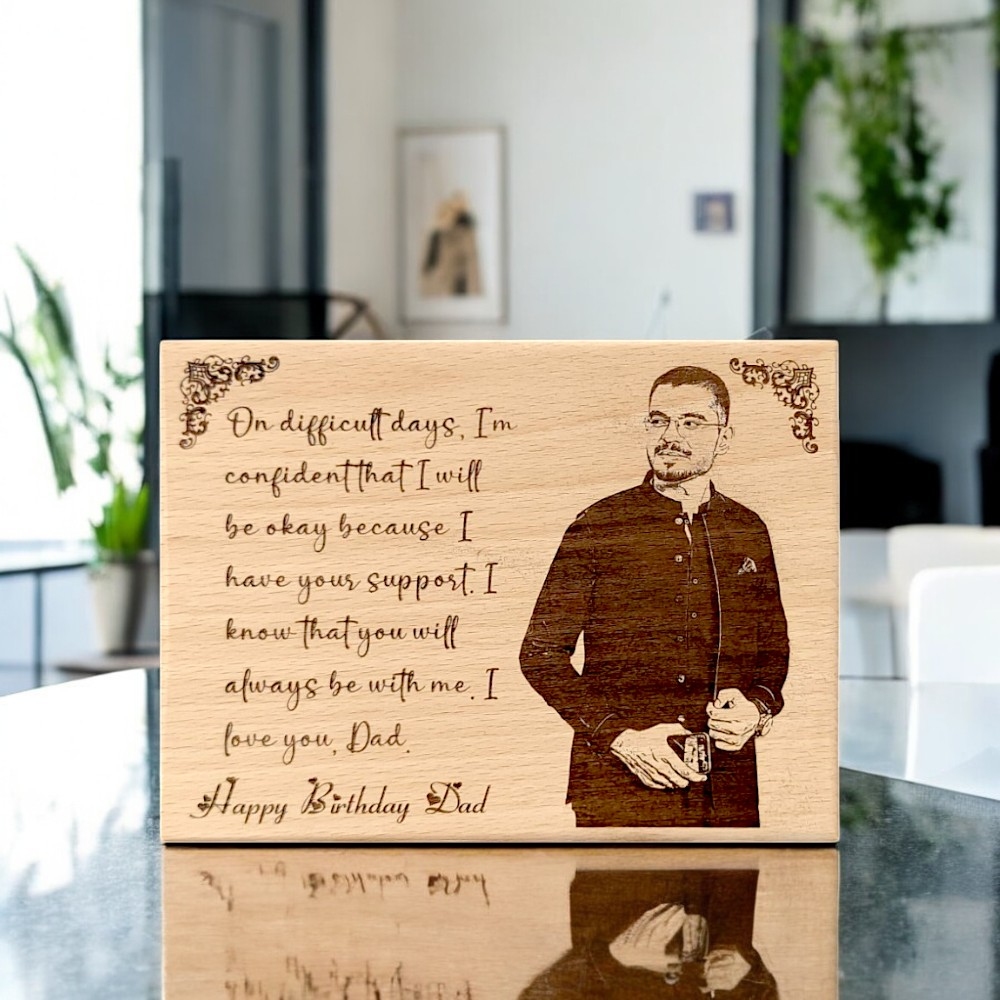 On difficult days, I'm
confident that I will
be okay because I
have your support. I
know that you will
always be with me. I
love you, Dad.
Happy Birthday Dad